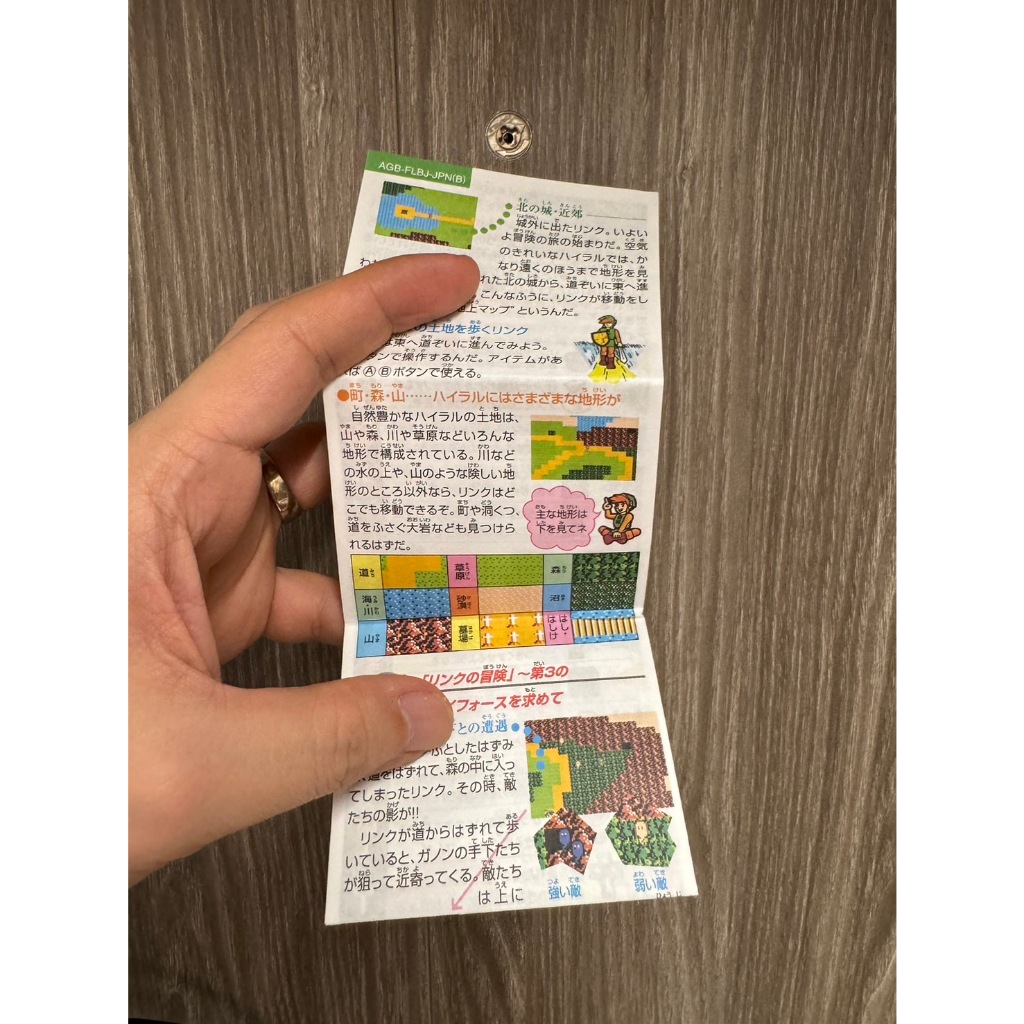 AGB-FLBJ-JPN(B)
北の城・近郊
城外に出たリンク。いよい
よ冒険の旅の始まりだ。空気
のきれいなハイラルでは、か
なり遠くのほうまで地形を見
れた北の城から、道ぞいに東へ進
こんなふうに、リンクが移動をし
上マップ”というんだ。
の土地を歩くリンク
は東へ道ぞいに進んでみよう。
タンで操作するんだ。アイテムがあ
ばⒶⒷボタンで使える。
●町・森・山……ハイラルにはさまざまな地形が
自然豊かなハイラルの土地は、
山や森、川や草原などいろんな
地形で構成されている。川など
の水の上や、山のような険しい地
形のところ以外なら、リンクはど
こでも移動できるぞ。町や洞くつ、
道をふさぐ大岩なども見つけら
れるはずだ。
主な地形は
下を見てネ
道 草原 森
海・川 砂漠 沼
山 墓場 はし・はしけ
「リンクの冒険」〜第3の
イフォースを求めて
との遭遇●
ふとしたはずみ
道をはずれて、森の中に入っ
てしまったリンク。その時、敵
たちの影が!!
リンクが道からはずれて歩
いていると、ガノンの手下たち
が狙って近寄ってくる。敵たち
は上に
強い敵
弱い敵